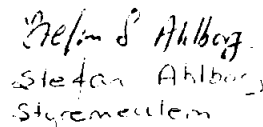 Stefan S Ahlborg
Stefan Ahlborg
Styremedlem